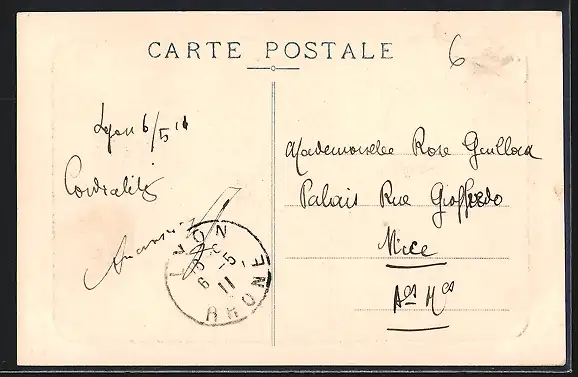 CARTE POSTALE
6
Lyon 6/5 11
Cordialités
LYON
6 -5
11
RHONE
Mademoiselle Rose Guillod
Palais Rue Gioffredo
Nice
Aes Mes